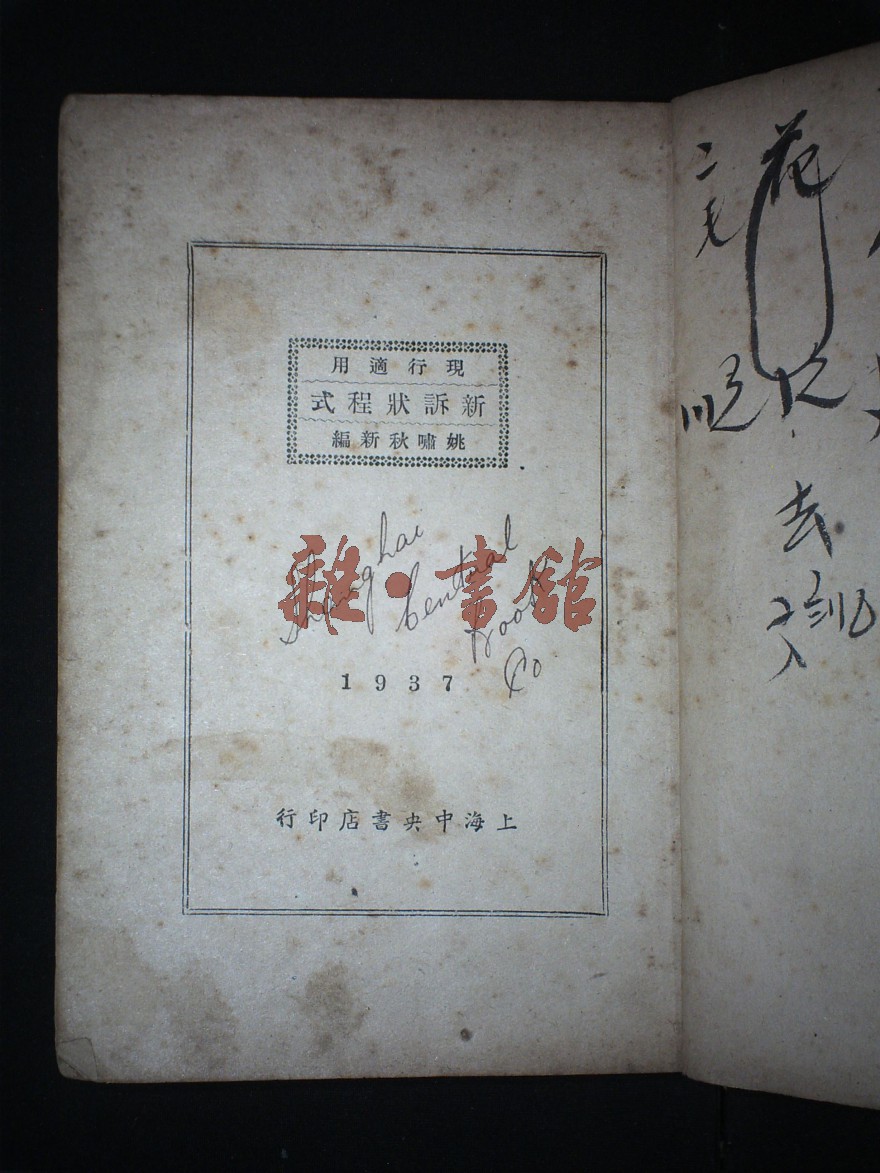 現行適用
新訴狀程式
姚嘯秋新編
雜·書館
Shanghai
Central
Book
Co
1937
上海中央書店印行
花
去